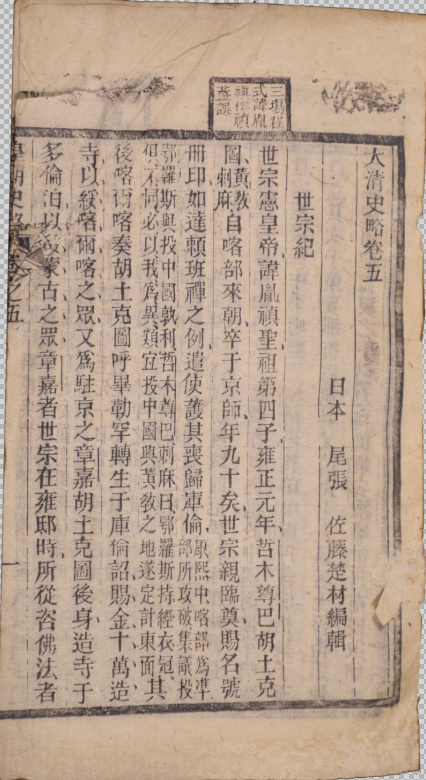 諱胤
大清史略卷五
日本 尾張 佐藤楚材編輯
世宗紀
世宗憲皇帝諱胤禛聖祖第四子雍正元年哲木尊巴胡土克
圖黃教刺麻自喀部來朝卒于京師年九十矣世宗親臨奠賜名號
冊印如達賴班禪之例遣使護其喪歸庫倫康熙中喀部爲準
部所攻破集議投
鄂羅斯與投中國孰利哲木尊巴刺麻曰鄂羅斯持經衣冠
俱不同必以我爲異類宜投中國興黃教之地遂定計東面其
後喀爾喀奏胡土克圖呼畢勒罕轉生于庫倫詔賜金十萬造
寺以綏喀爾喀之眾又爲駐京之章嘉胡土克圖後身造寺于
多倫泊以綏蒙古之眾章嘉者世宗在雍邸時所從咨佛法者
朝史略卷之五 一